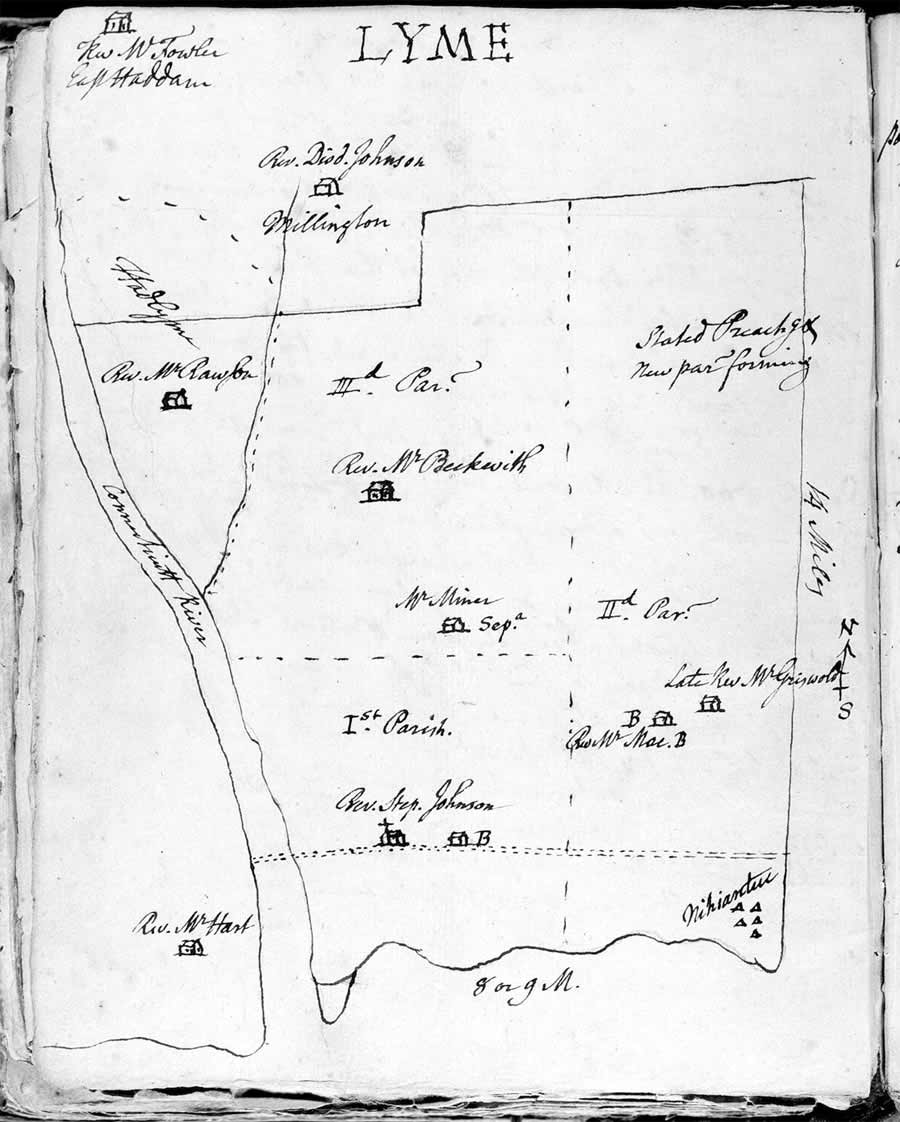 LYME
Rev Mr Fowler
East Haddam
Rev. Diod. Johnson
Millington
Hadlyme
Stated Preachg &
New par forming
Rev. Mr Rawson
IIId. Par.
Rev. Mr Beckwith
14 Miles
Connecticutt River
Mr Miner
Sepa
IId. Par.
N
S
Late Rev Mr Griswold
B
Rev Mr Mac. B
Ist. Parish.
Rev. Step. Johnson
B
Nihiantuc
Rev. Mr Hart
8 or 9 M.